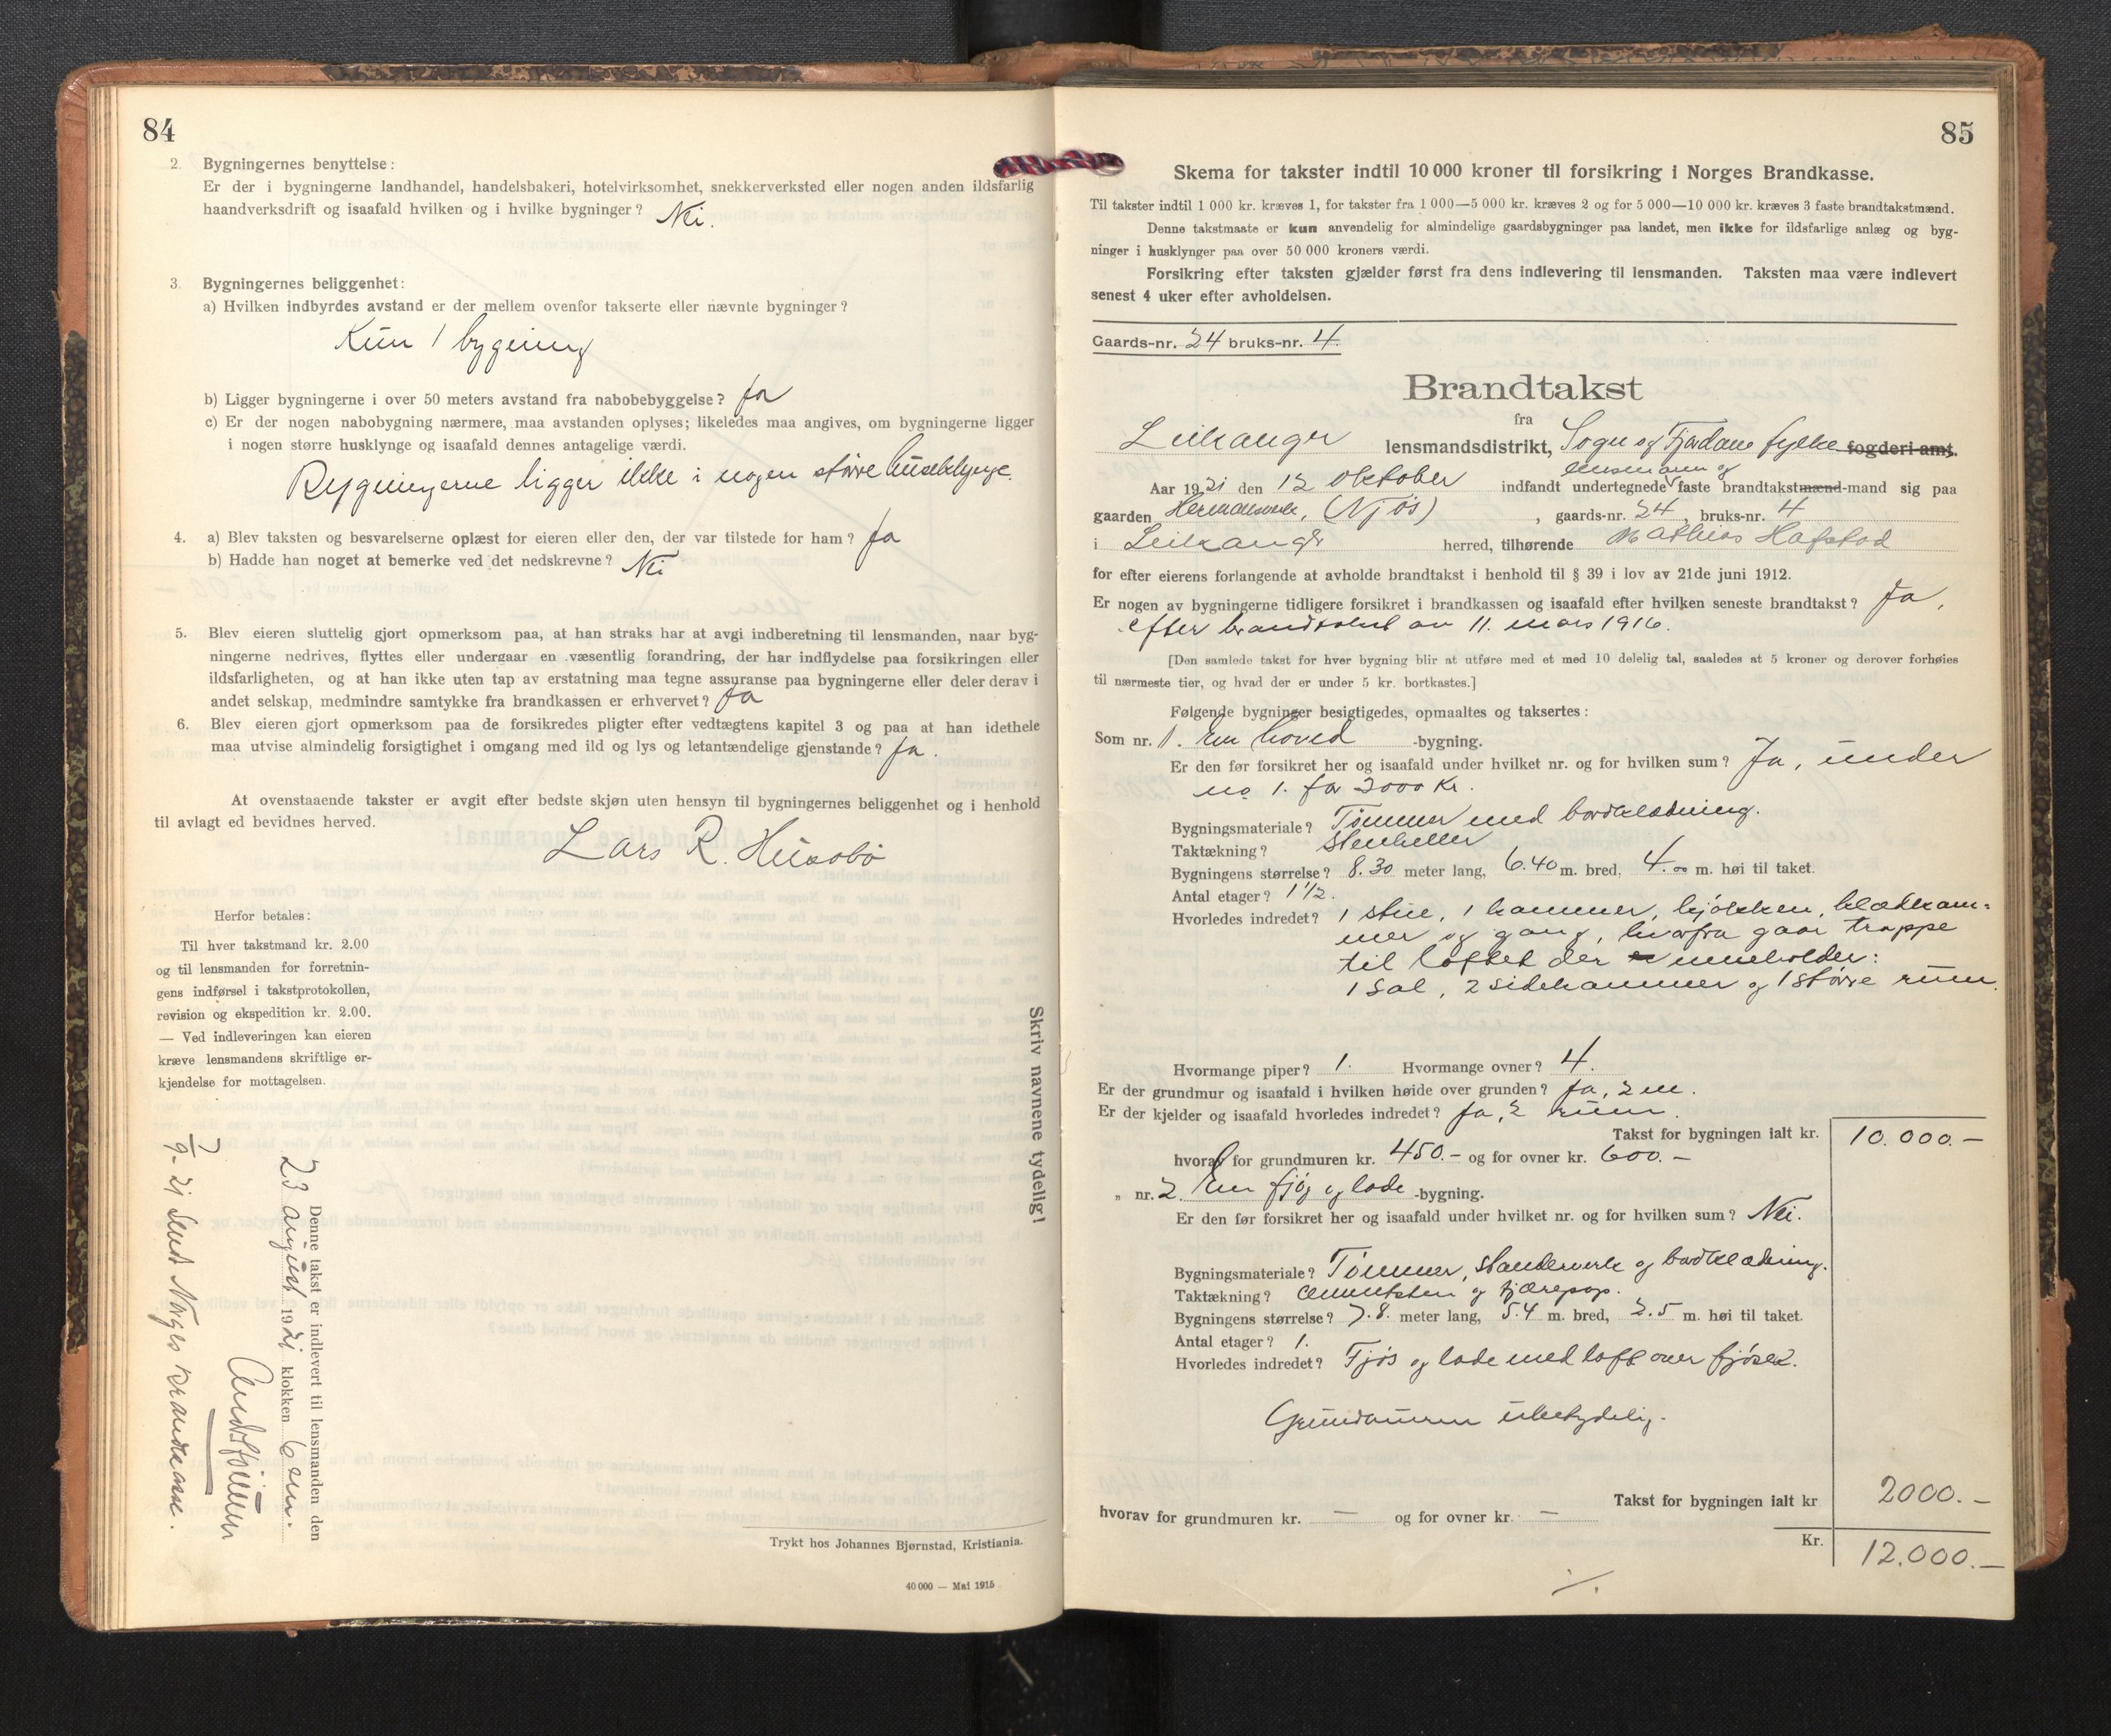 84
2. Bygningernes benyttelse:
Er der i bygningerne landhandel, handelsbakeri, hotelvirksomhet, snekkerverksted eller nogen anden ildsfarlig
haandverksdrift og isaafald hvilken og i hvilke bygninger? Nei.
3. Bygningernes beliggenhet:
a) Hvilken indbyrdes avstand er der mellem ovenfor takserte eller nævnte bygninger?
Kun 1 bygning
b) Ligger bygningerne i over 50 meters avstand fra nabobebyggelse? Ja
c) Er der nogen nabobygning nærmere, maa avstanden oplyses; likeledes maa angives, om bygningerne ligger
i nogen større husklynge og isaafald dennes antagelige værdi.
Bygningerne ligger ikke i nogen större husklynge.
4. a) Blev taksten og besvarelserne oplæst for eieren eller den, der var tilstede for ham? Ja
b) Hadde han noget at bemerke ved det nedskrevne? Nei
5. Blev eieren sluttelig gjort opmerksom paa, at han straks har at avgi indberetning til lensmanden, naar byg-
ningerne nedrives, flyttes eller undergaar en væsentlig forandring, der har indflydelse paa forsikringen eller
ildsfarligheten, og at han ikke uten tap av erstatning maa tegne assuranse paa bygningerne eller deler derav i
andet selskap, medmindre samtykke fra brandkassen er erhvervet? Ja
6. Blev eieren gjort opmerksom paa de forsikredes pligter efter vedtægtens kapitel 3 og paa at han idethele
maa utvise almindelig forsigtighet i omgang med ild og lys og letantændelige gjenstande? Ja.
At ovenstaaende takster er avgit efter bedste skjøn uten hensyn til bygningernes beliggenhet og i henhold
til avlagt ed bevidnes herved.
Lars R. Husabö
Herfor betales:
Til hver takstmand kr. 2.00
og til lensmanden for forretnin-
gens indførsel i takstprotokollen,
revision og ekspedition kr. 2.00.
— Ved indleveringen kan eieren
kræve lensmandens skriftlige er-
kjendelse for mottagelsen.
Skriv navnene tydelig!
Denne takst er indlevert til lensmanden den
23 august 1921 klokken 6 em.
7/9- 21 Sendt Norges Brandkasse.
Trykt hos Johannes Bjørnstad, Kristiania.
40 000 — Mai 1915
85
Skema for takster indtil 10 000 kroner til forsikring i Norges Brandkasse.
Til takster indtil 1 000 kr. kræves 1, for takster fra 1 000—5 000 kr. kræves 2 og for 5 000—10 000 kr. kræves 3 faste brandtakstmænd.
Denne takstmaate er kun anvendelig for almindelige gaardsbygninger paa landet, men ikke for ildsfarlige anlæg og byg-
ninger i husklynger paa over 50 000 kroners værdi.
Forsikring efter taksten gjælder først fra dens indlevering til lensmanden. Taksten maa være indlevert
senest 4 uker efter avholdelsen.
Gaards-nr. 24 bruks-nr. 4.
Brandtakst
fra
Leikanger lensmandsdistrikt, Sogn og Fjordane fylke fogderi amt.
lensmann og
Aar 1921 den 12 oktober indfandt undertegnede faste brandtakstmænd-mand sig paa
gaarden Hermansverk, (Njøs), gaards-nr. 24, bruks-nr. 4
i Leikanger herred, tilhørende Mathias Hafstad
for efter eierens forlangende at avholde brandtakst i henhold til § 39 i lov av 21de juni 1912.
Er nogen av bygningerne tidligere forsikret i brandkassen og isaafald efter hvilken seneste brandtakst? Ja,
efter brandtakst av 11. mars 1916.
[Den samlede takst for hver bygning blir at utføre med et med 10 delelig tal, saaledes at 5 kroner og derover forhøies
til nærmeste tier, og hvad der er under 5 kr. bortkastes.]
Følgende bygninger besigtigedes, opmaaltes og taksertes:
Som nr. 1. En hoved -bygning.
Er den før forsikret her og isaafald under hvilket nr. og for hvilken sum? Ja, under
no 1. for 2000 Kr.
Bygningsmateriale? Tömmer med bordklædning.
Taktækning? stenheller
Bygningens størrelse? 8.30 meter lang, 6.40 m. bred, 4.00 m. høi til taket.
Antal etager? 1 1/2.
Hvorledes indredet? 1 stue, 1 kammer, kjökken, klædkam-
mer og gang, hvorfra gaar trappe
til loftet der inneholder:
1 sal, 2 sidekammer og 1 större rum.
Hvormange piper? 1. Hvormange ovner? 4.
Er der grundmur og isaafald i hvilken høide over grunden? Ja, 2 m.
Er der kjelder og isaafald hvorledes indredet? Ja, 2 rum.
Takst for bygningen ialt kr. 10.000.-
hvorav for grundmuren kr. 450.- og for ovner kr. 600.-
„ nr. 2. En fjøs og lade -bygning.
Er den før forsikret her og isaafald under hvilket nr. og for hvilken sum? Nei.
Bygningsmateriale? Tömmer, standerverk og bordklædning.
Taktækning? cementsten og tjærepap.
Bygningens størrelse? 7.8. meter lang, 5.4 m. bred, 2.5 m. høi til taket.
Antal etager? 1.
Hvorledes indredet? Fjös og lade med loft over fjöset.
Grundmuren ubetydelig.
Takst for bygningen ialt kr 2000.-
hvorav for grundmuren kr. — og for ovner kr. —
Kr. 12.000.-